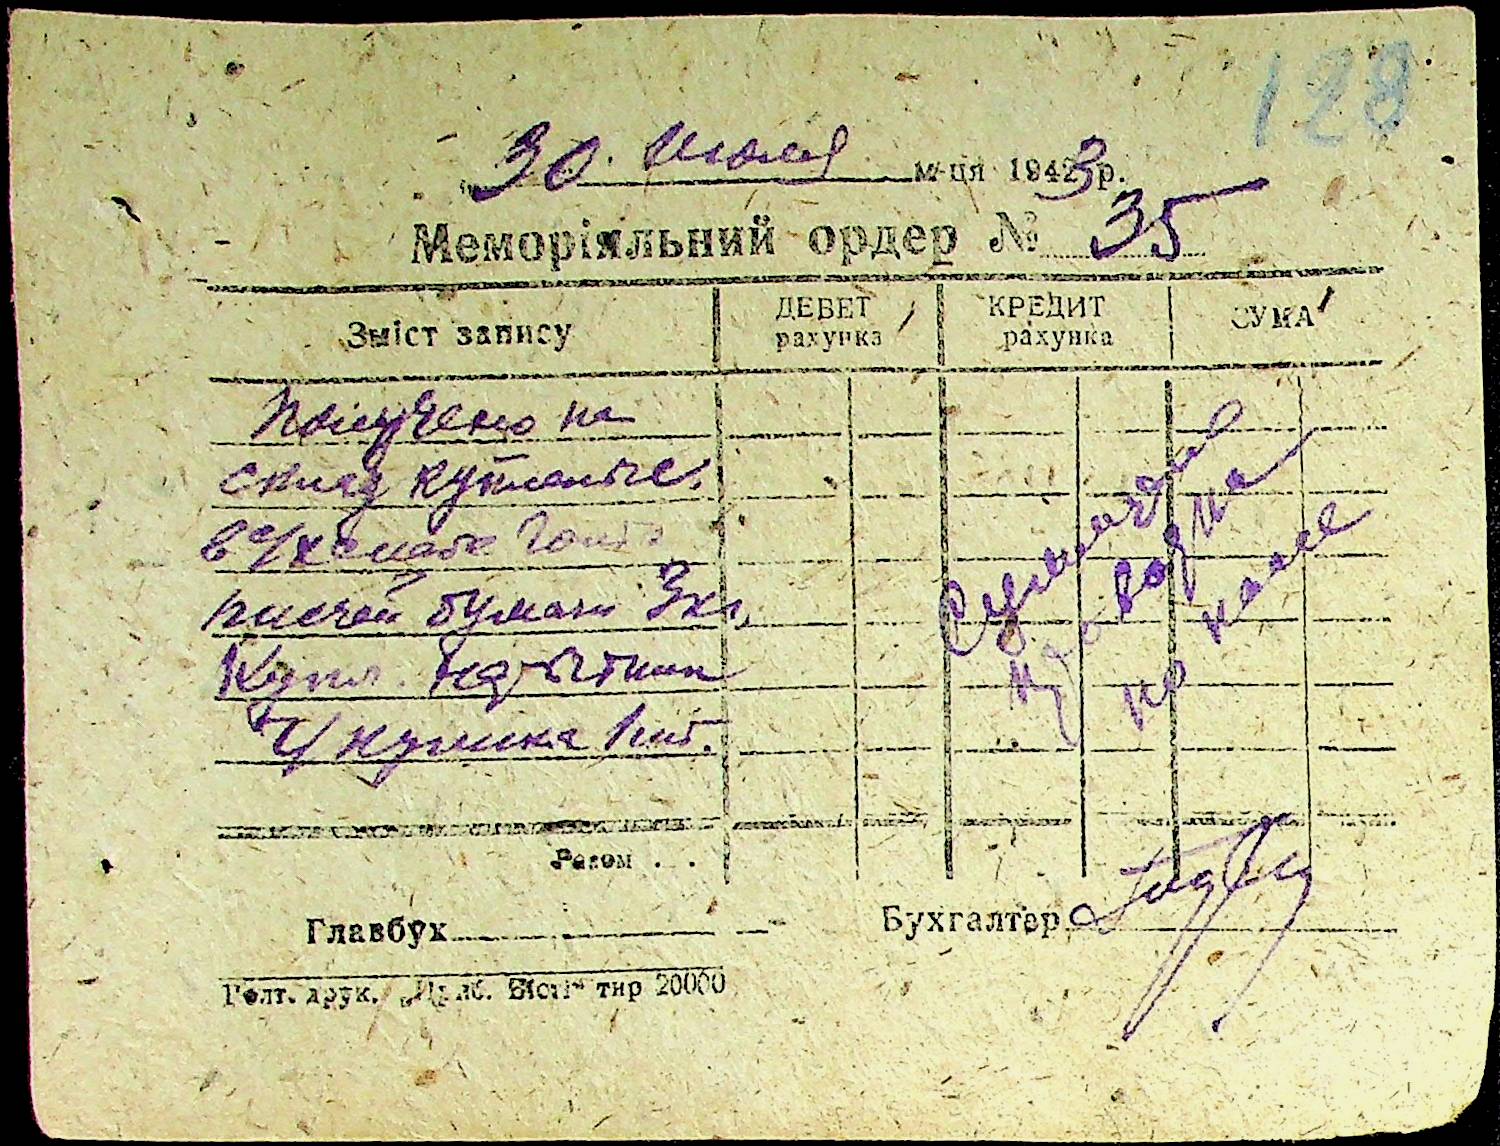 128
30 Июля м-ця 1943 р.
Меморіяльний ордер № 35
Зміст запису ДЕБЕТ рахунка КРЕДИТ рахунка СУМА
Получено на
склад купленые
в с/х
писчей бумаги 3 кг.
Купл.
1 шт.
Сумма
проведена
по кассе
Разом . . .
Главбук Бухгалтер
друк. Вісті" тир 20000